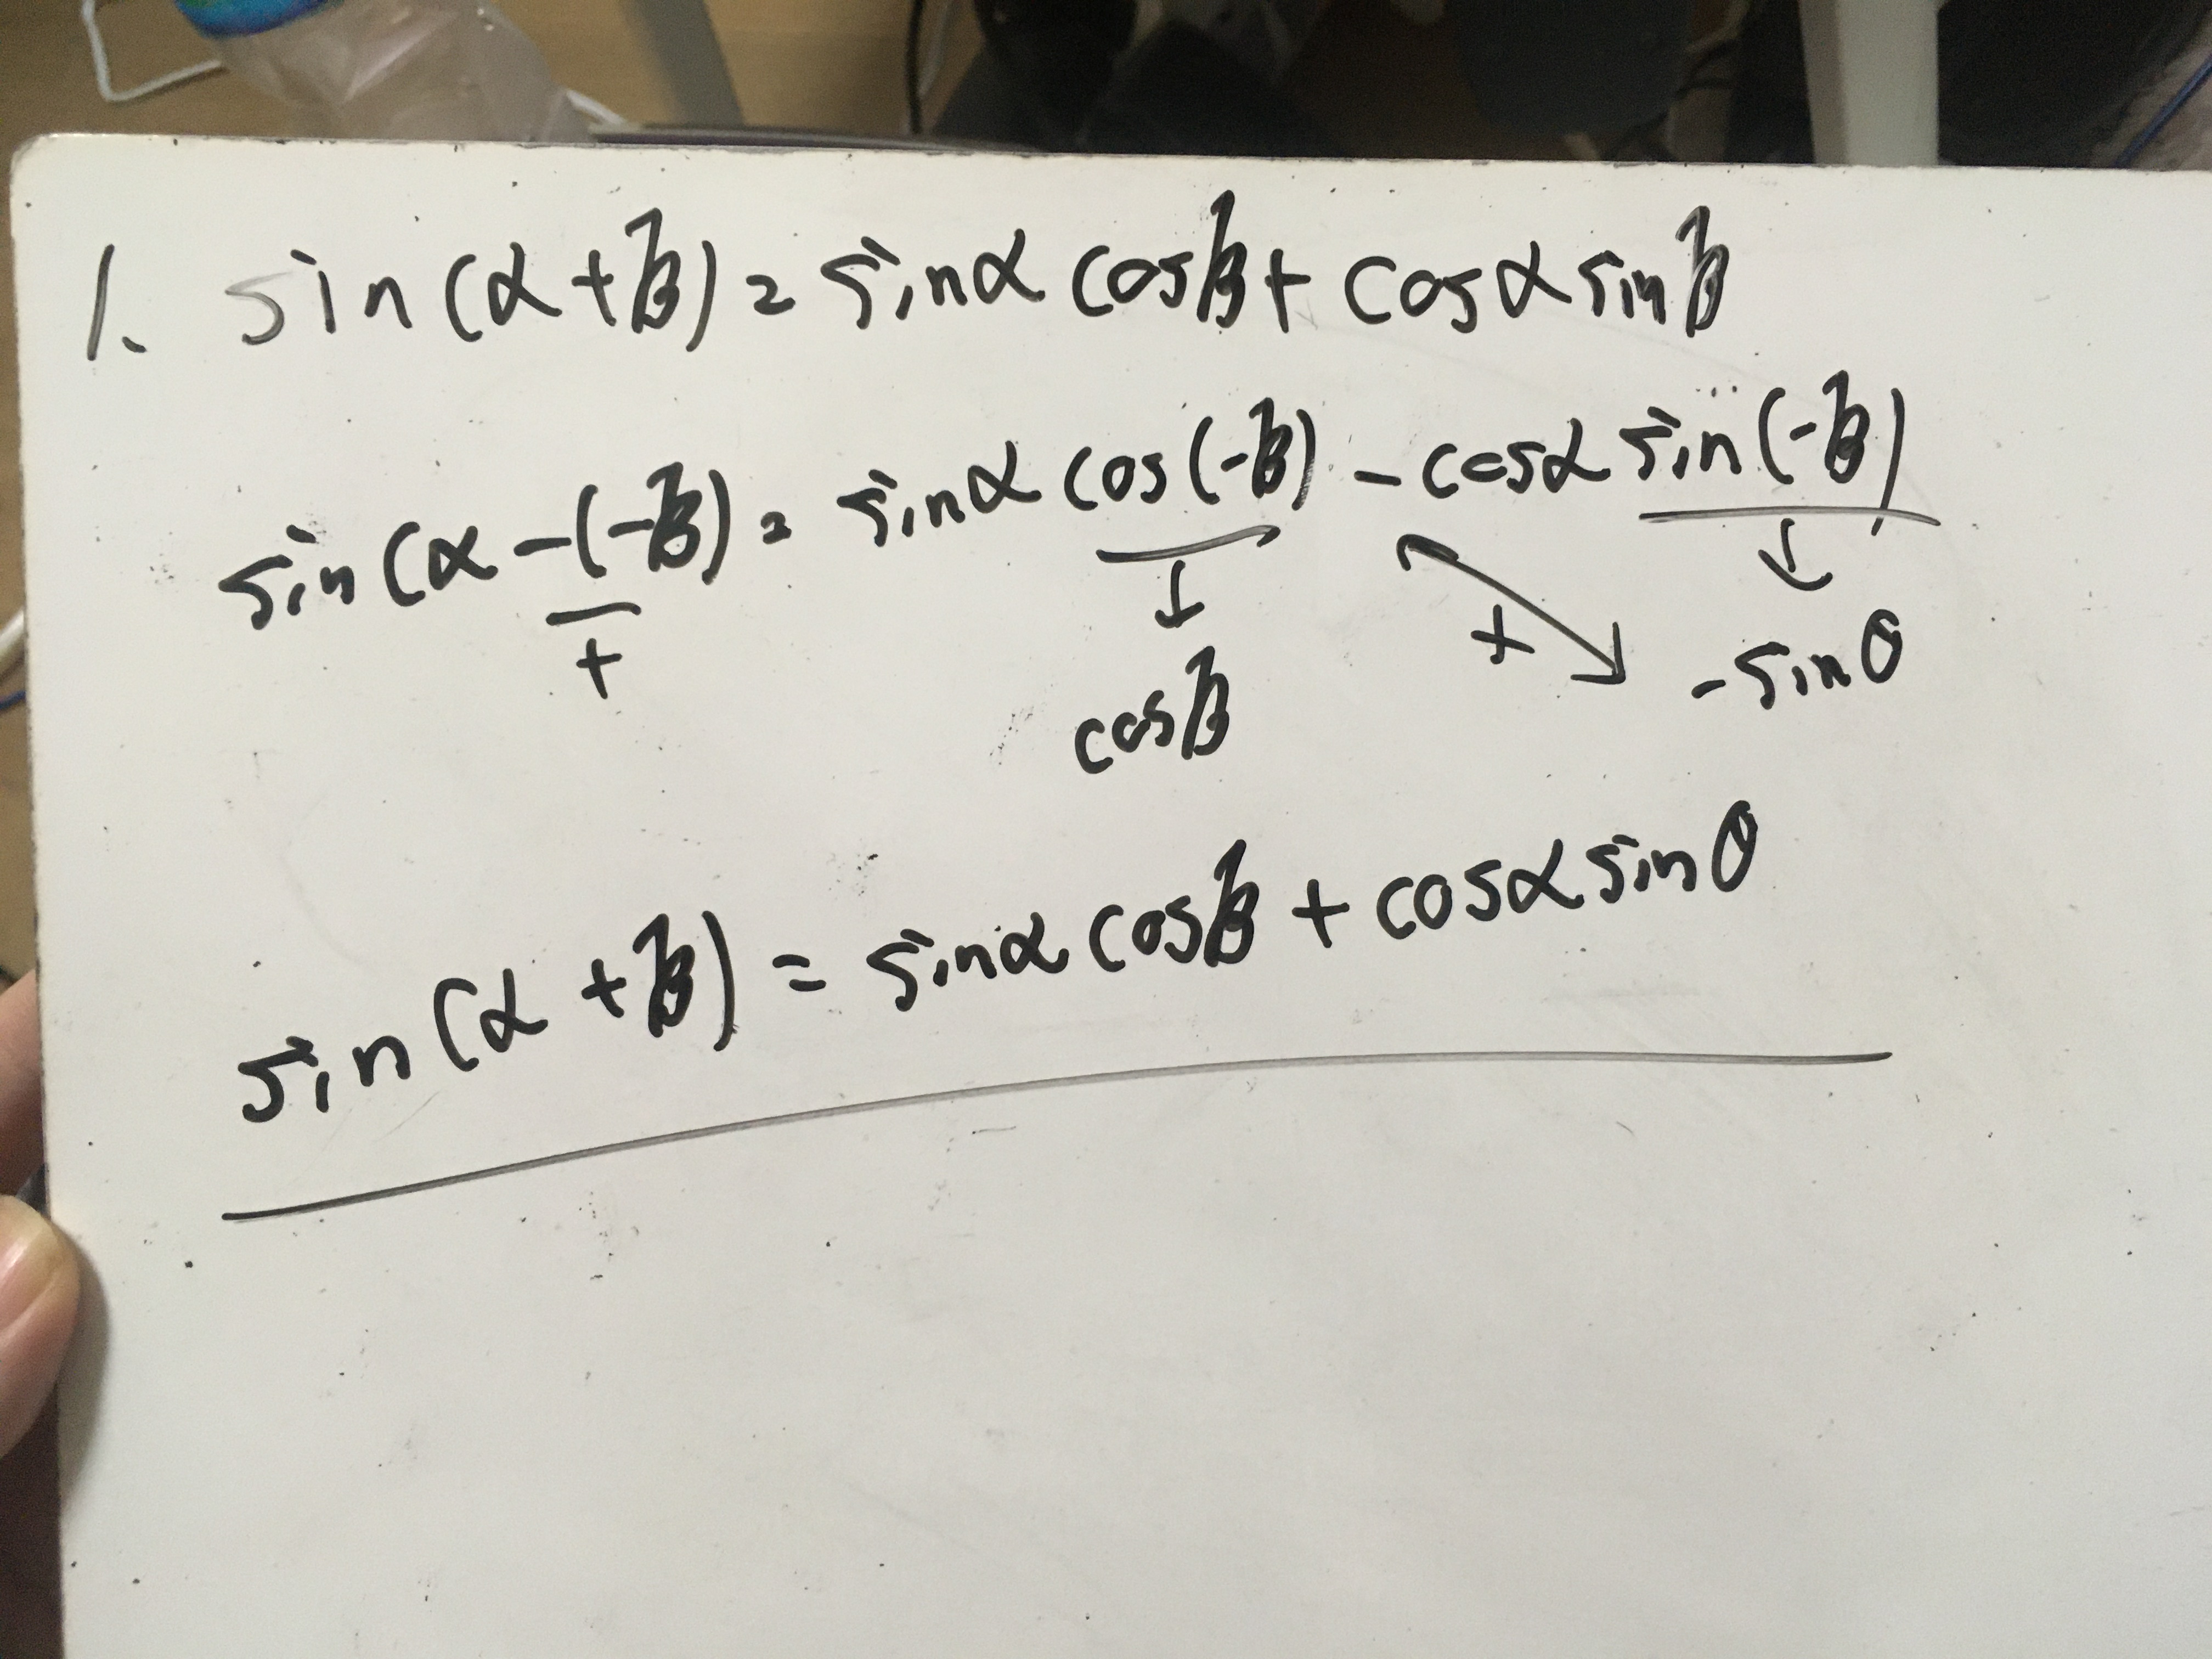 1. sin(α+β) = sinα cosβ + cosα sinβ
sin(α-(-β)) = sinα cos(-β) - cosα sin(-β)
+ ↓ + ↓
cosβ -sinθ
sin(α+β) = sinα cosβ + cosα sinθ